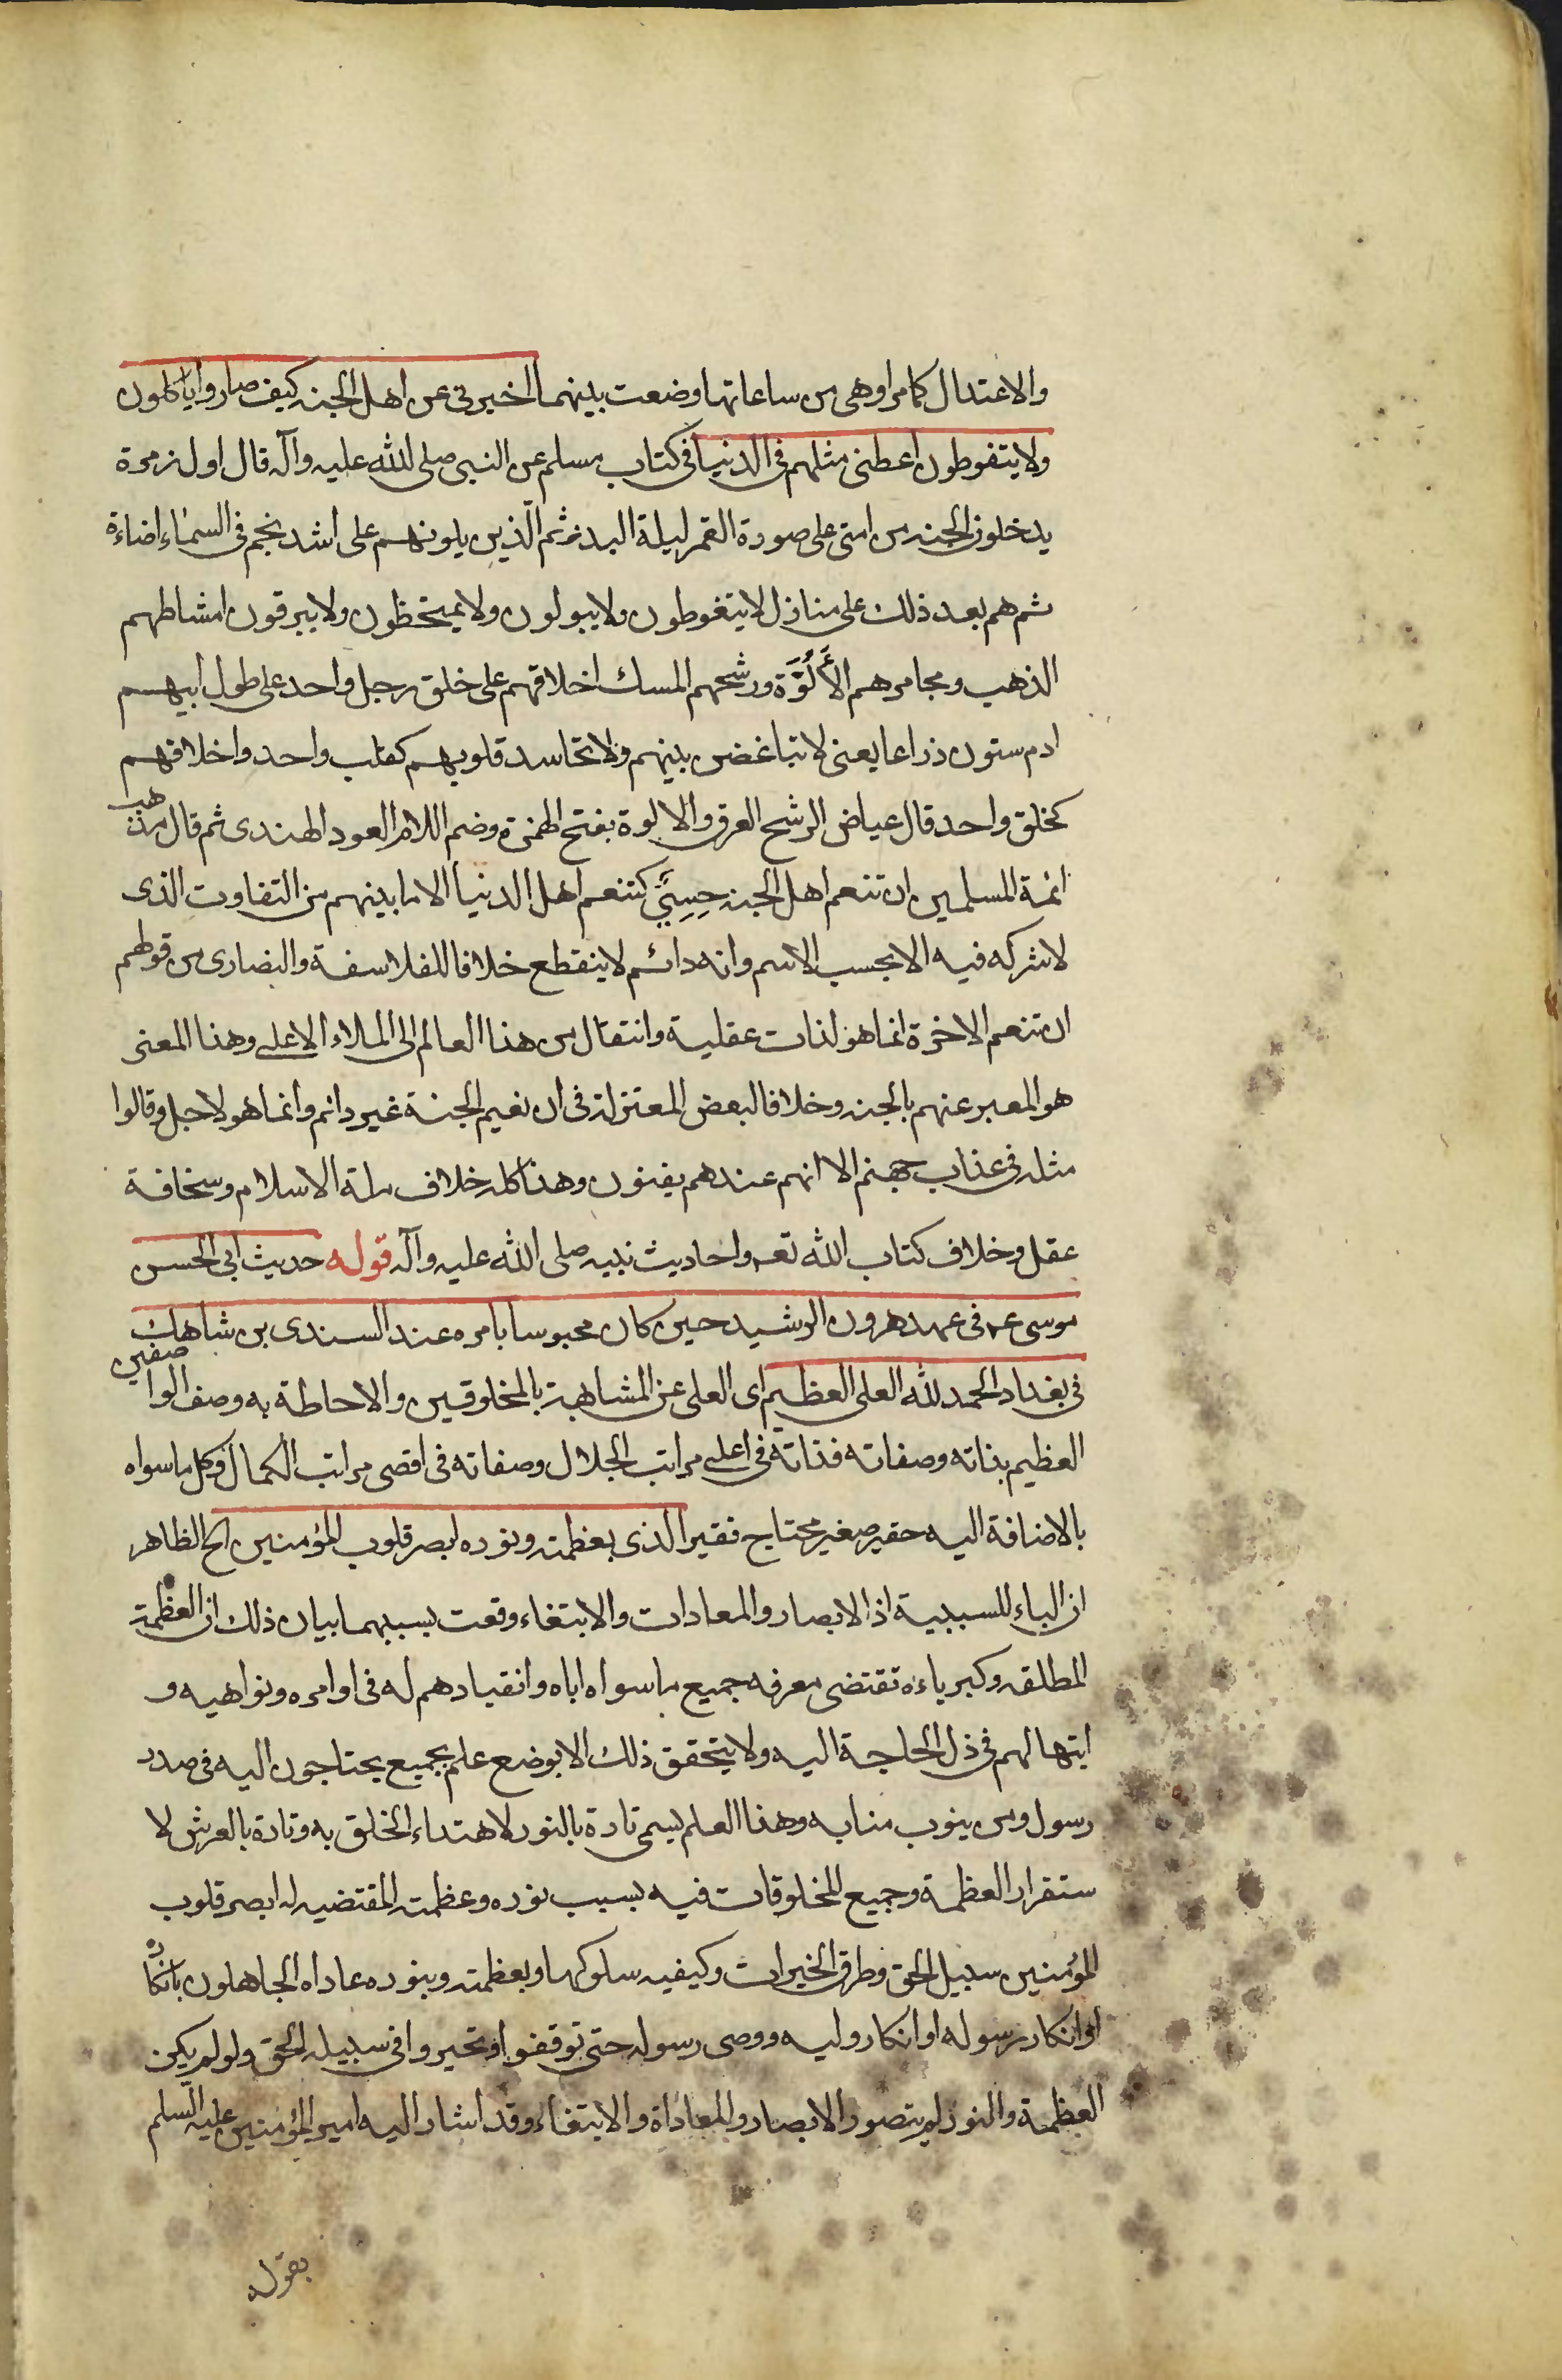 والاعتدال كما مر او هي من ساعاتها وضعت بينهما اخبرني عن اهل الجنه كيف صاروا ياكلون
ولا يتغوطون اعطني مثلهم في الدنيا في كتاب مسلم عن النبي صلى الله عليه وآله قال اول زمرة
يدخلون الجنه من امتي على صورة القمر ليلة البدر ثم الذين يلونهم على اشد نجم في السماء اضاءة
ثم هم بعد ذلك على منازل لا يتغوطون ولا يبولون ولا يمتخطون ولا يبزقون امشاطهم
الذهب ومجامرهم الأَلُوَّة ورشحهم المسك اخلاقهم على خلق رجل واحد على طول ابيهم
ادم ستون ذراعا يعنى لا تباغض بينهم ولا تحاسد قلوبهم كقلب واحد واخلاقهم
كخلق واحد قال عياض الرشح العرق والالوة بفتح الهمزة وضم اللام العود الهندى ثم قال مذهب
ائمة المسلمين ان تنعم اهل الجنه حِسِيٌّ كتنعم اهل الدنيا الا ما بينهم من التفاوت الذى
لا شركه فيه الا بحسب الاسم وانه دائم لا ينقطع خلافا للفلاسفة والنصارى من قولهم
ان تنعم الاخرة انما هو لذات عقلية وانتقال من هذا العالم الى الملاء الاعلى وهذا المعنى
هو المعبر عنهم بالجنه وخلافا لبعض المعتزله في ان نعيم الجنة غير دائم وانما هو لاجل وقالوا
مثله في عذاب جهنم الا انهم عندهم يفنون وهذا كله خلاف ملة الاسلام وسخافة
عقل وخلاف كتاب الله تعـ واحاديث نبيه صلى الله عليه وآله قوله حديث ابي الحسن
موسى عـ في عهد هرون الرشيد حين كان محبوسا بامره عند السندى بن شاهك
في بغداد الحمد لله العلى العظيم اى العلى عن المشابهة بالمخلوقين والاحاطة به وصف الواصفين
العظيم بذاته وصفاته فذاته في اعلى مراتب الجلال وصفاته في اقصى مراتب الكمال وكل ما سواه
بالاضافة اليه حقير صغير محتاج فقير الذى بعظمته ونوره ابصر قلوب المؤمنين الخ الظاهر
ان الباء للسببية اذ الابصار والمعادات والابتغاء وقعت بسببهما بيان ذلك ان العظمة
المطلقه وكبرياءه تقتضى معرفه جميع ما سواه اياه وانقيادهم له في اوامره ونواهيه و
ابتهالهم في ذل الحاجة اليه ولا يتحقق ذلك الا بوضع علم بجميع يحتاجون اليه في صدر
رسول ومن ينوب منابه وهذا العلم يسمى تارة بالنور لاهتداء الخلق به وتارة بالعرش لا
ستقرار العظمة وجميع المخلوقات فيه بسبب نوره وعظمته المقتضيه له ابصر قلوب
المؤمنين سبيل الحق وطرق الخيرات وكيفيه سلوكها وبعظمته وبنوره عاداه الجاهلون بانكاره
او انكار رسوله او انكار وليه ووصى رسوله حتى توقفوا او تحيروا في سبيله الحق ولو لم يكن
العظمة والنور لم يتصور الابصار والمعاداة والابتغاء وقد اشار اليه امير المؤمنين عليه السلم
بقوله